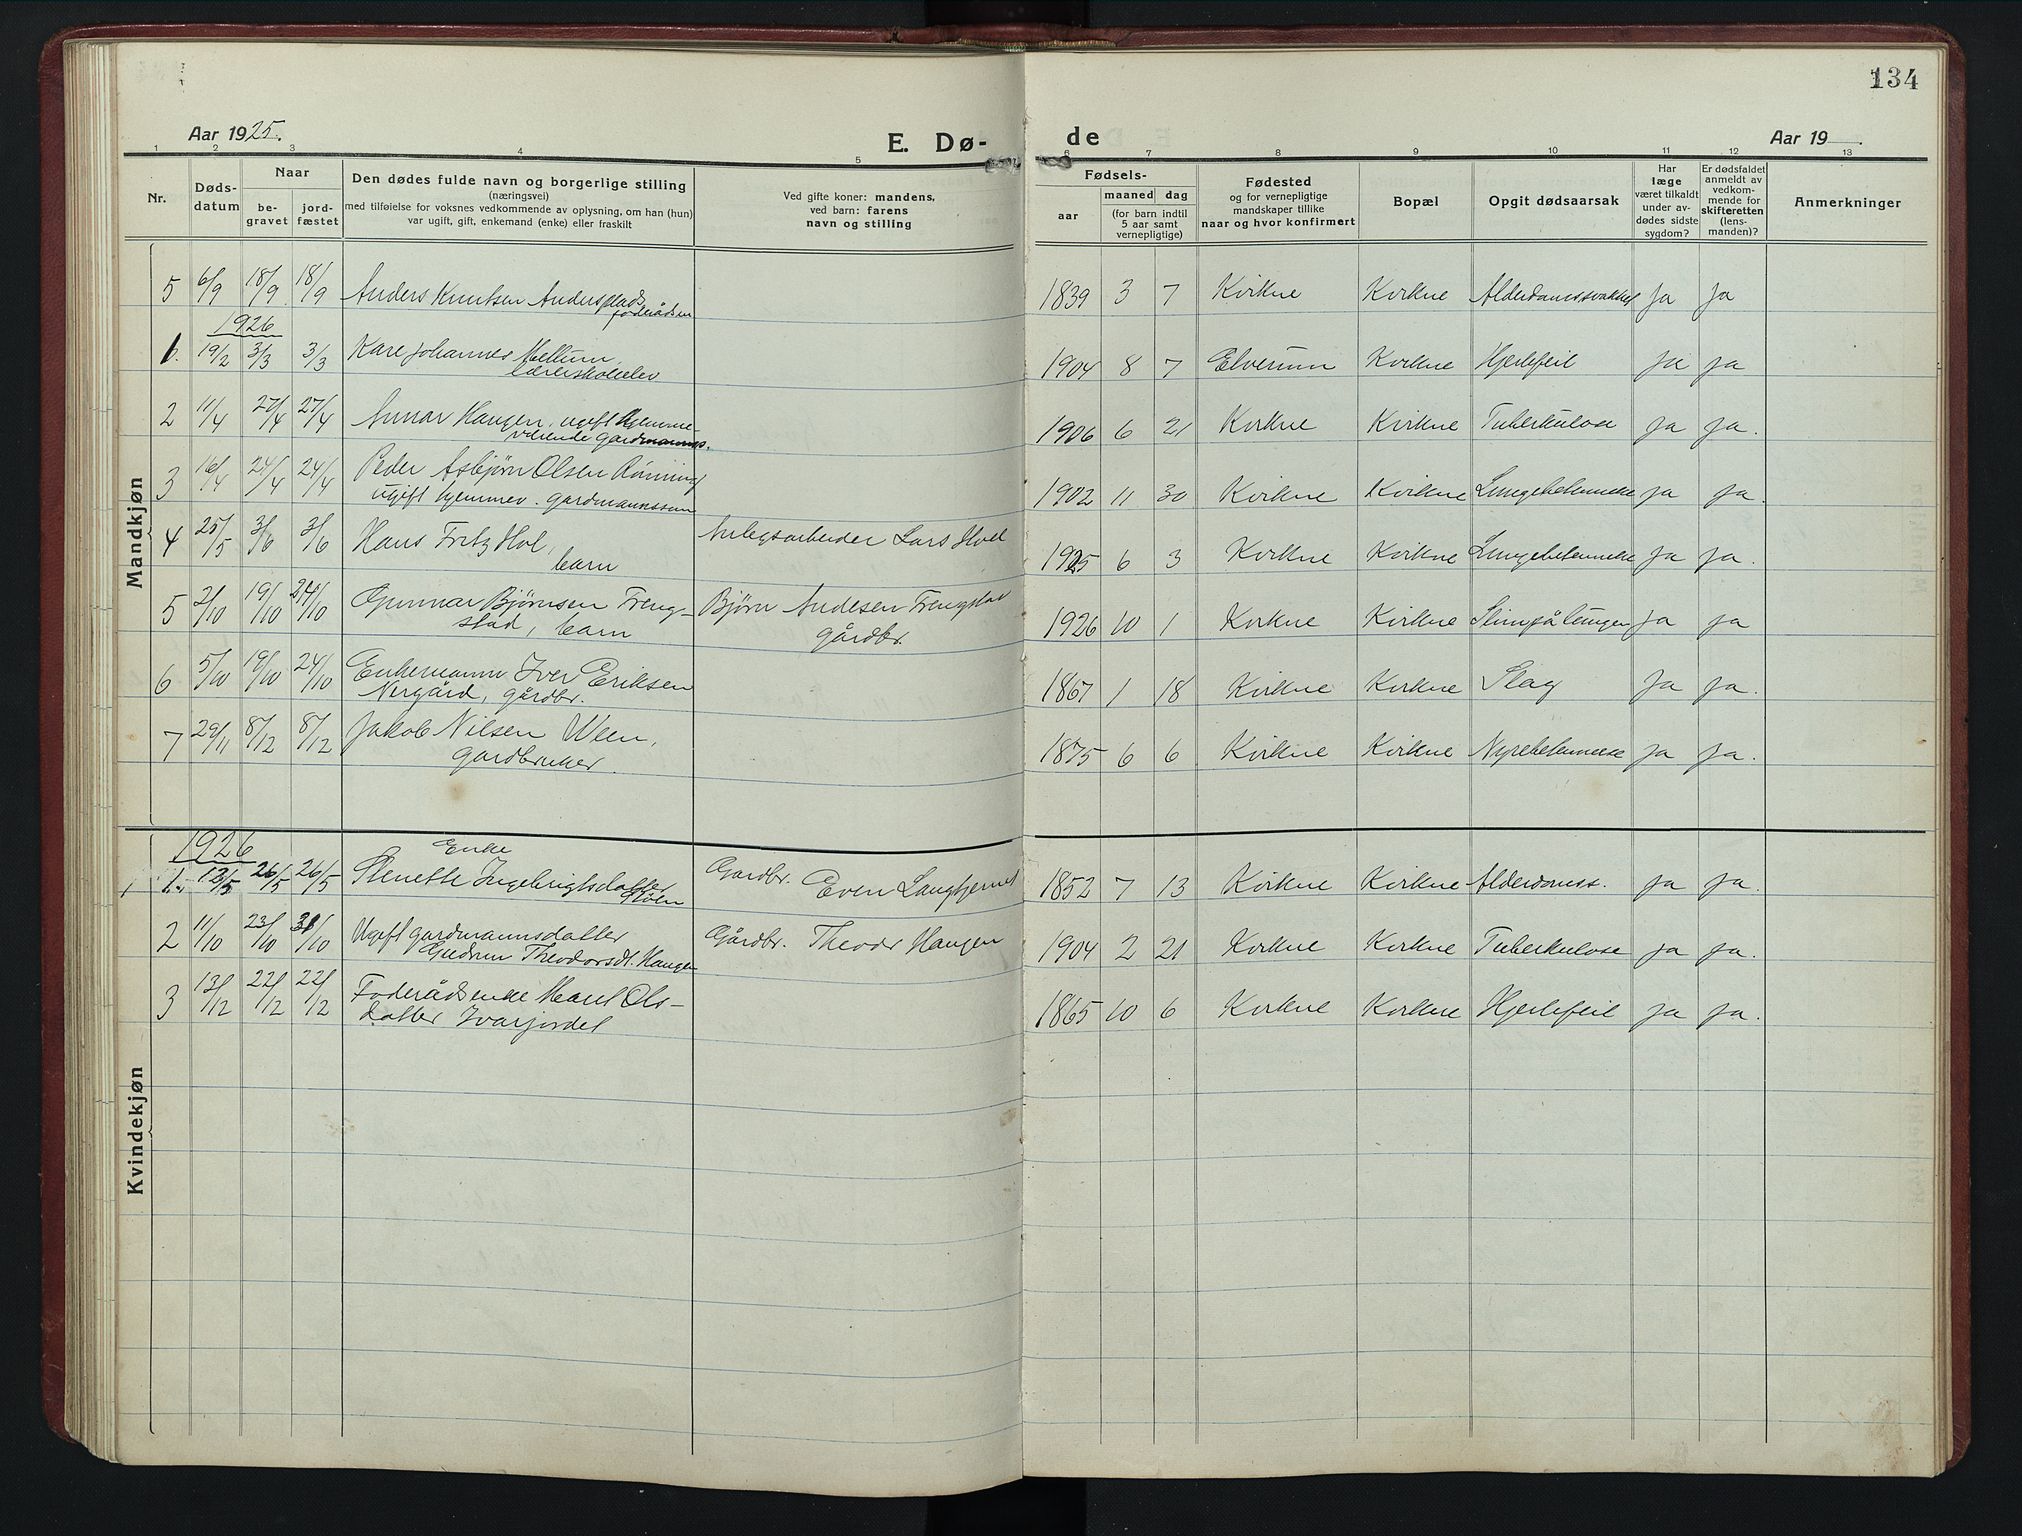 134
Aar 1925.
E. Dø-
de
Aar 19
1 2 3 4 5 6 7 8 9 10 11 12 13
Nr.
Døds-
datum
Naar
be-
gravet
jord-
fæstet
Den dødes fulde navn og borgerlige stilling
(næringsvei)
med tilføielse for voksnes vedkommende av oplysning, om han (hun)
var ugift, gift, enkemand (enke) eller fraskilt
Ved gifte koner: mandens,
ved barn: farens
navn og stilling
Fødsels-
aar
maaned dag
(for barn indtil
5 aar samt
vernepligtige)
Fødested
og for vernepligtige
mandskaper tillike
naar og hvor konfirmert
Bopæl
Opgit dødsaarsak
Har
læge
været tilkaldt
under av-
dødes sidste
sygdom?
Er dødsfaldet
anmeldt av
vedkom-
mende for
skifteretten
(lens-
manden)?
Anmerkninger
Mandkjøn
5 6/9 18/9 18/9 Anders Knutsen 1839 3 7 Kvikne Kvikne Ja Ja
foderådsm
1926
1. 19/2 3/3 3/3 Kåre Johannes Mellum, 1904 8 7 Elverum Kvikne Hjertefeil Ja Ja
lærerskoleelev
2 11/4 27/4 27/4 Gunnar Haugen, ugift hjemme- 1906 6 21 Kvikne Kvikne Tuberkulose Ja Ja.
værende gardmannss.
3 16/4 24/4 24/4 Peder Asbjørn Olsen Rønning 1902 11 30 Kvikne Kvikne Lungebetennelse Ja Ja.
ugift hjemmev. gardmannssøn
4 25/5 3/6 3/6 Hans Fritz Hol, Anlegsarbeider Lars Hoel 1925 6 3 Kvikne Kvikne Lungebetennelse Ja Ja.
barn
5 2/10 19/10 24/10 Gunnar Bjørnsen Treng- Bjørn Andersen Trengstad 1926 10 1 Kvikne Kvikne Slim på lungen Ja Ja
stad, barn gårdbr.
6 5/10 19/10 24/10 Enkemann Iver Eriksen 1867 1 18 Kvikne Kvikne Slag Ja Ja.
Nergård, gårdbr.
7 29/11 8/12 8/12 Jakob Nilsen Ween, 1875 6 6 Kvikne Kvikne Nyrebetennelse Ja Ja.
gardbruker.
Kvindekjøn
1926
Enke
1. 13/5 26/5 26/5 Stenette Ingebrigtsdatter Gardbr. Even 1852 7 13 Kvikne Kvikne Alderdomss. Ja Ja.
2 11/10 23/10 31/10 Ugift gardmannsdatter Gårdbr. Theodor Haugen 1904 2 21 Kvikne Kvikne Tuberkulose Ja Ja.
Gudrun Theodorsdt. Haugen
3 13/12 22/12 22/12 Foderådsenke Marit Ols- 1865 10 6 Kvikne Kvikne Hjertefeil Ja Ja.
datter Ivarjordet